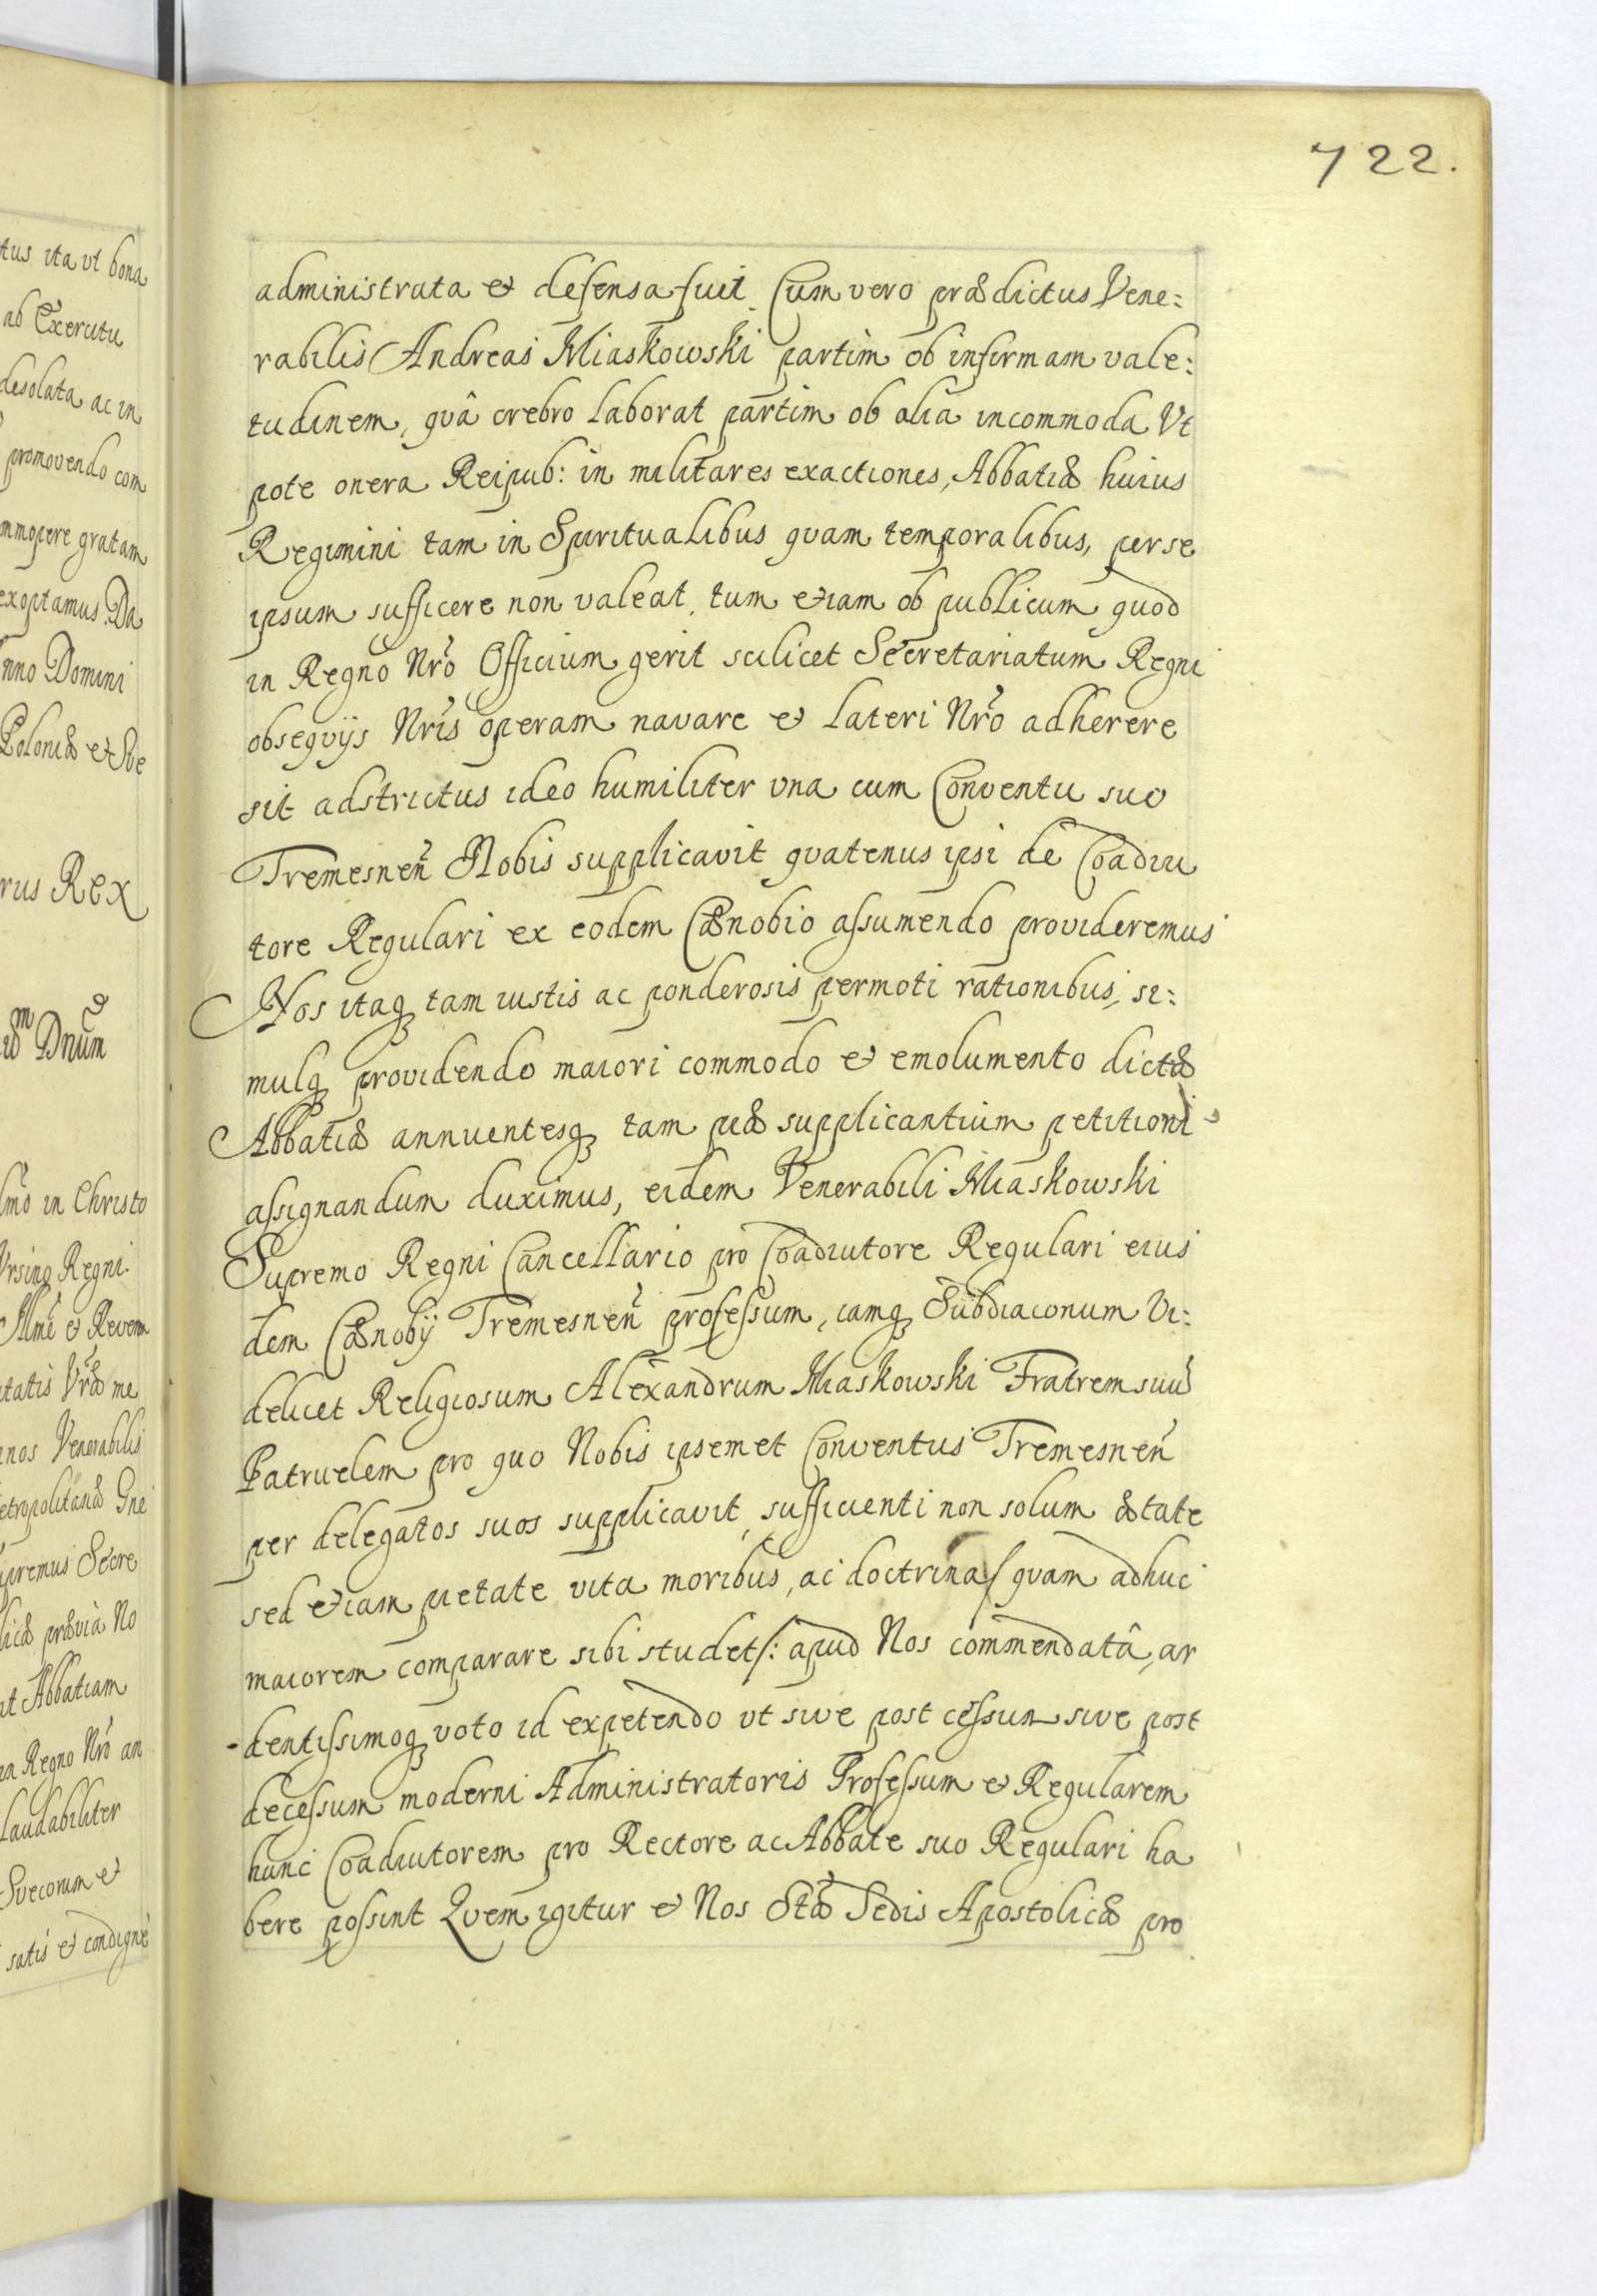 722.
administrata et defensa fuit. Cum vero prædictus Vene:
rabilis Andreas Miaskowski partim ob infirmam vale:
tudinem, qvâ crebro laborat partim ob alia incommoda Vt
pote onera Reipub: in militares exactiones, Abbatiæ huius
Regimini tam in Spiritualibus qvam temporalibus, per se
ipsum sufficere non valeat, tum etiam ob publicum qvod
in Regno Nr̃o Officium gerit scilicet Secretariatum Regni
obseqvijs Nr̃is operam navare et lateri Nr̃o adherere
sit adstrictus ideo humiliter vna cum Conventu suo
Tremesneñ Nobis supplicavit qvatenus ipsi de Coadiu
tore Regulari ex eodem Cænobio assumendo provideremus
Nos itaq; tam iustis ac ponderosis permoti rationibus, si:
mulq; providendo maiori commodo et emolumento dictæ
Abbatiæ annuentesq; tam piæ supplicantium petitioni
assignandum duximus, eidem Venerabili Miaskowski
Supremo Regni Cancellario pro Coadiutore Regulari eius
dem Cænobij Tremesneñ professum, iamq; Subdiaconum Vi:
delicet Religiosum Alexandrum Miaskowski Fratrem suũ
Patruelem pro quo Nobis ipsemet Conventus Tremesneñ
per delegatos suos supplicavit, sufficienti non solum ætate
sed etiam pietate vita moribus, ac doctrina /qvam adhuc
maiorem comparare sibi studet/: apud Nos commendatâ, ar
dentissimoq; voto id expetendo vt sive post cessum sive post
decessum moderni Administratoris Professum et Regularem
hunc Coadiutorem pro Rectore ac Abbate suo Regulari ha
bere possint Qvem igitur et Nos Stæ Sedis Apostolicæ pro
tus ita vt bona
ab Exercitu
desolata ac in
promovendo com
mmopere gratam
exoptamus. Da
nno Domini
Poloniæ et Sve
rus Rex
Dnum
mo in Christo
Vrsino Regni
Illme et Reveren
tatis Vræ me
nos Venerabilis
etropolitanæ Gne
upremus Secre
licæ prævia No
Abbatiam
Regno Nr̃o an
laudabiliter
Svecorum et
satis et condigne